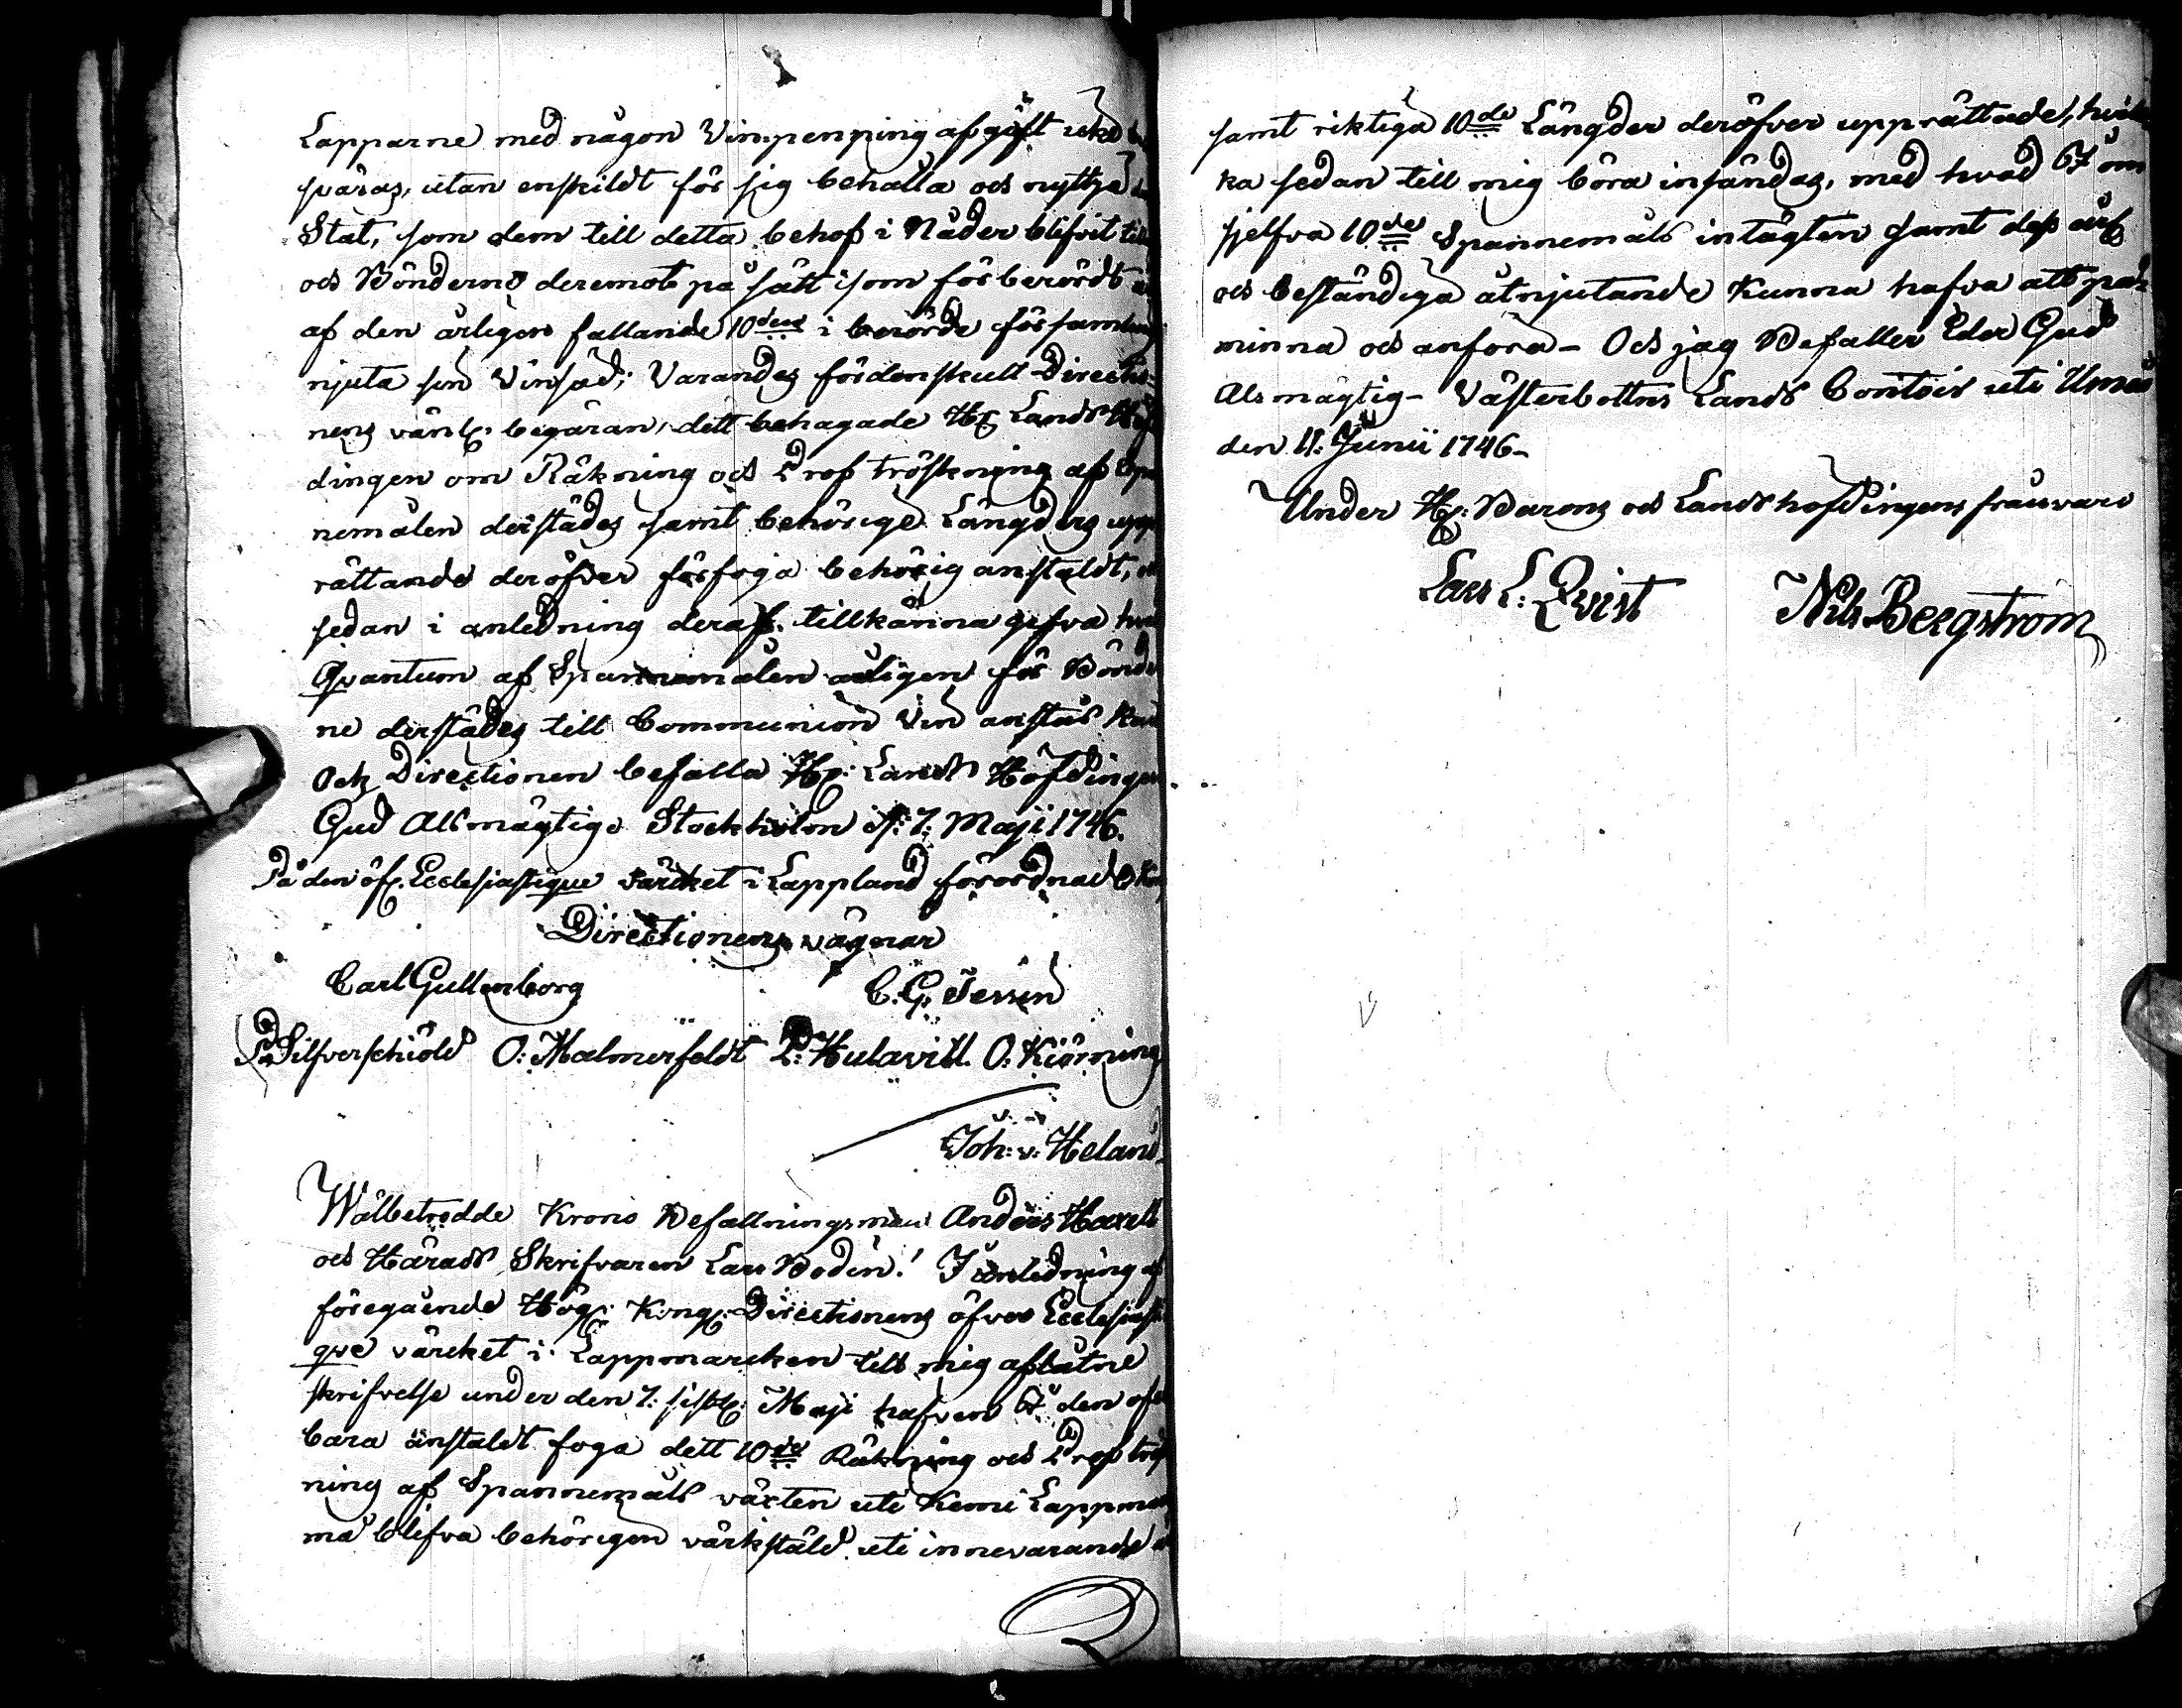 Lapparne med någon Vinpenning afgift icke
spåras, utan enskildt för sig behålla och nyttja
Stat, som dem till detta behof i Nåder blifvit
och Bönderne deremot på sätt som förberördt
af den årligen fallande 10den i berörde församling
njuta sin Vinsäd; Varandes fördenskull Directio-
nens vänl: begäran, dett behagade Hr Lands Höf
dingen om Räkning och Prof tröskning af Span
nemålen derstädes samt behörige Längders upp
rättande deröfver förfoga behörig anstaldt,
sedan i anledning deraf tillkänna gifva hvad
Qvantum af Spannemålen årligen för Bönder
ne derstädes till Communion Vin anslås kan
Och Directionen befalla Hr: Lands Höfdingen
Gud Alsmägtige Stockholm d: 7: Maji 1746.
På den öf: Ecclesiastique värcket i Lappland förordnade Kon
Directionens vägnar
Carl Gyllenborg C. G. Tessin
Silfverschiöld O: Malmerfeldt O: Kiörning
Joh: v: Heland
Wälbetrodde Krono Befallningsman Anders Haxell
och Härads Skrifvaren Lars Bodin! I anledning af
föregående Högl: Kongl: Directionens öfver Ecclesiasti
qve värcket i Lappmarcken till mig aflåtne
skrifvelse under den 7: sistl: Maji hafven I den ofel
bara anstaldt foga dett 10de Räkning och Prof trösk
ning af Spannemåls växten uti Kemi Lappmark
må blifva behörigen värkstäld uti innevarande
samt riktiga 10de Längder deröfver upprättade, hvil
ka sedan till mig böra insändas, med hvad I om
sjelfva 10de Spannemåls intägten samt dess
och beständiga åtnjutande kunna hafva att på-
minna och anföra - Och jag Befaller Eder Gud
Alsmägtig - Västerbottns Lands Contoir uti Umeå
den 11. Junii 1746 -
Under Hr: Barons och Landshöfdingens frånvaro
Lars L: Qvist Nils Bergström